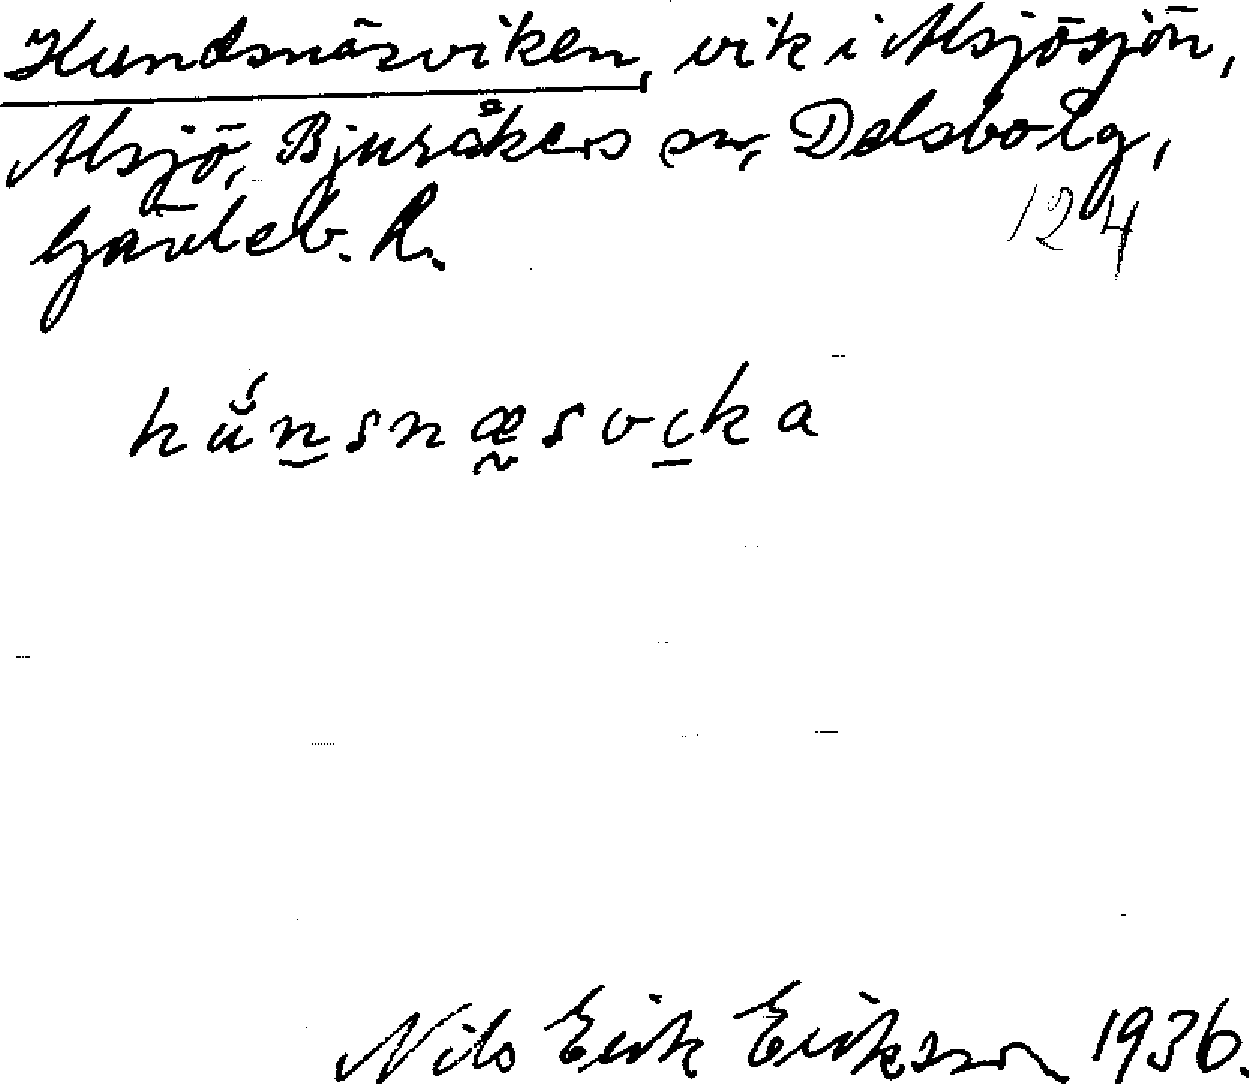 Hundsnäsviken, vik i Alsjösjön,
Alsjö, Bjuråkers sn, Delsborg,
Gävleb. R.
124
Nils Erik Eriksson 1936.